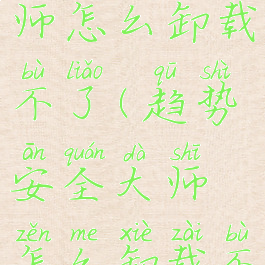 师怎么卸载
bù liǎo qū shì
不了(趋势
ān quán dà shī
安全大师
zěn me xiè zài bù
怎么卸载不